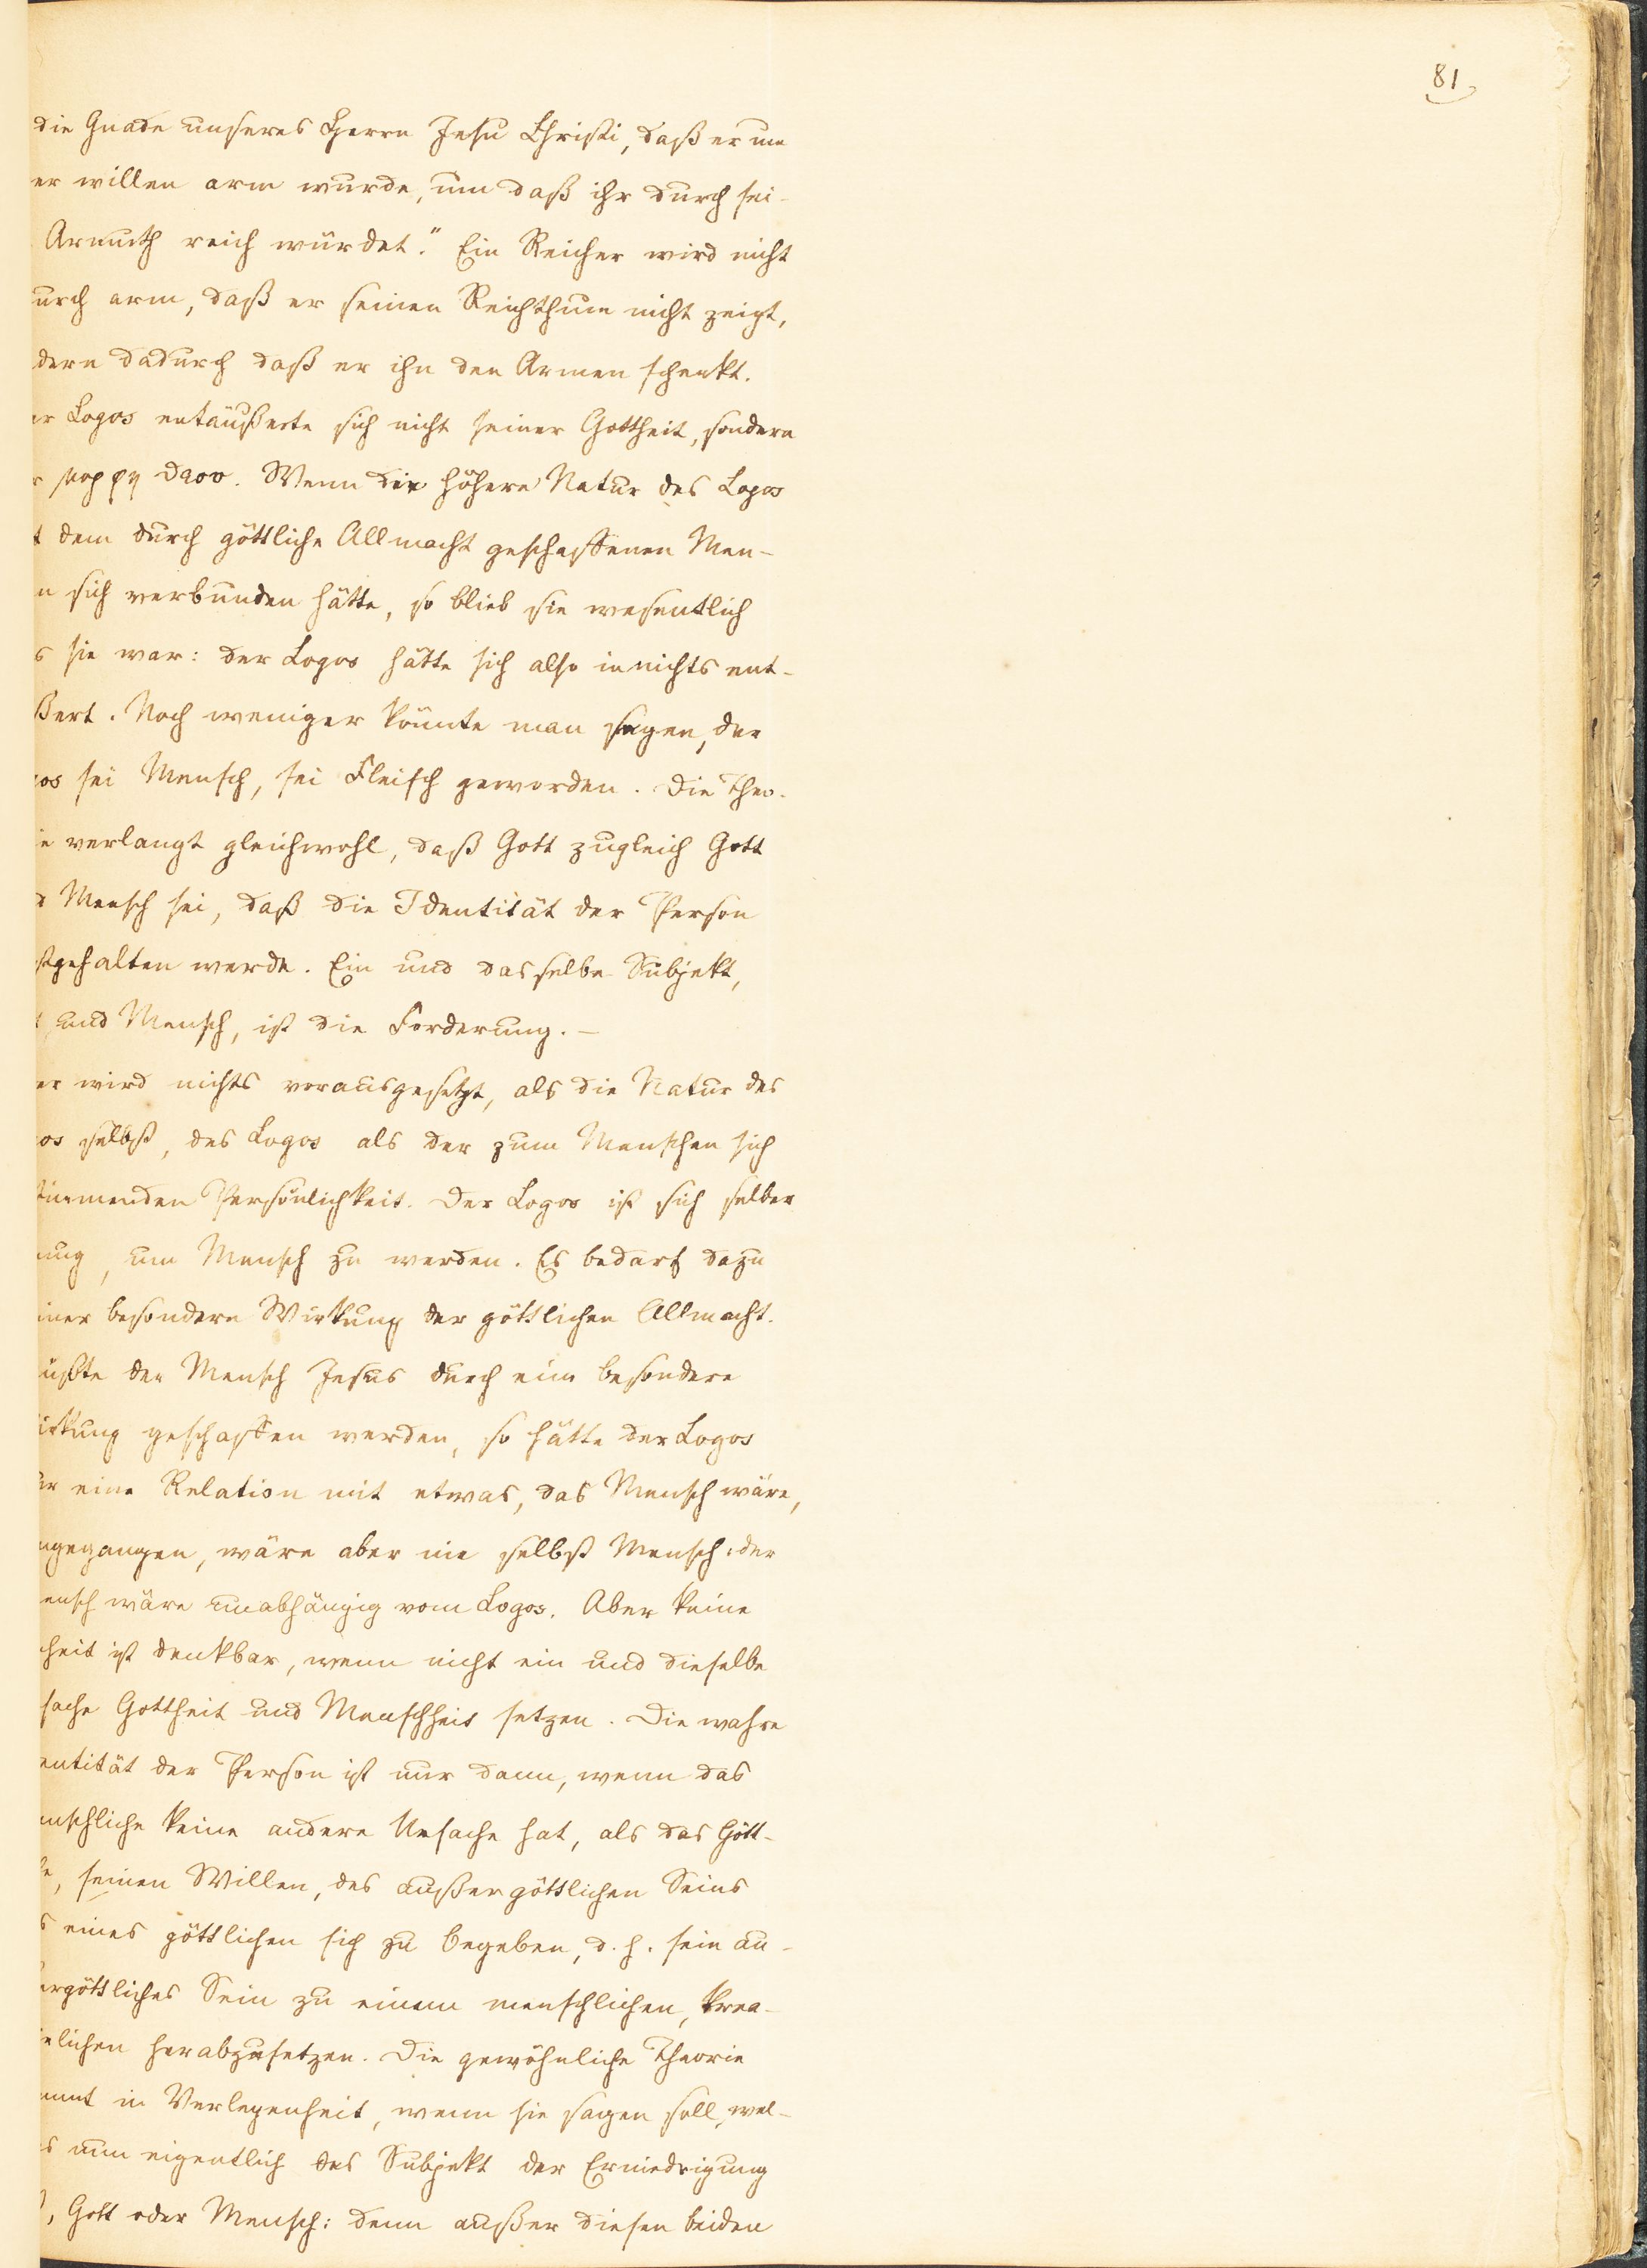 81
die Gnade unseres Herrn Jesu Christi, daß er um
er willen arm wurde, um daß ihr durch sei-
Armuth reich würdet." Ein Reicher wird nicht
urch arm, daß er seinen Reichthum nicht zeigt,
dern dadurch daß er ihn den Armen schenkt.
er Logos entäußerte sich nicht seiner Gottheit, sondern
r μορφη θεου. Wenn die höhere Natur des Logos
t dem durch göttliche Allmacht geschaffenen Men-
n sich verbunden hätte, so blieb sie wesentlich
s sie war: der Logos hätte sich also in nichts ent-
ßert. Noch weniger könnte man sagen, der
os sei Mensch, sei Fleisch geworden. Die Theo-
ie verlangt gleichwohl, daß Gott zugleich Gott
d Mensch sei, daß die Identität der Person
stgehalten werde. Ein und dasselbe Subjekt,
t und Mensch, ist die Forderung. –
er wird nichts vorausgesetzt, als die Natur des
os selbst, des Logos als der zum Menschen sich
stimmenden Persönlichkeit. Der Logos ist sich selber
nug, um Mensch zu werden. Es bedarf dazu
iner besondern Wirkung der göttlichen Allmacht.
üßte der Mensch Jesus durch eine besondere
irkung geschaffen werden, so hätte der Logos
ur eine Relation mit etwas, das Mensch wäre,
ngegangen, wäre aber nie selbst Mensch: der
ensch wäre unabhängig vom Logos. Aber keine
heit ist denkbar, wenn nicht ein und dieselbe
sache Gottheit und Menschheit setzen. Die wahre
entität der Person ist nur dann, wenn das
nschliche keine andere Ursache hat, als das Gött-
e, seinen Willen, des außergöttlichen Seins
s eines göttlichen sich zu begeben, d. h. sein au-
ergöttliches Sein zu einem menschlichen, krea-
lichen herabzusetzen. Die gewöhnliche Theorie
mmt in Verlegenheit, wenn sie sagen soll, wel-
es nun eigentlich das Subjekt der Erniedrigung
, Gott oder Mensch: denn außer diesen beiden